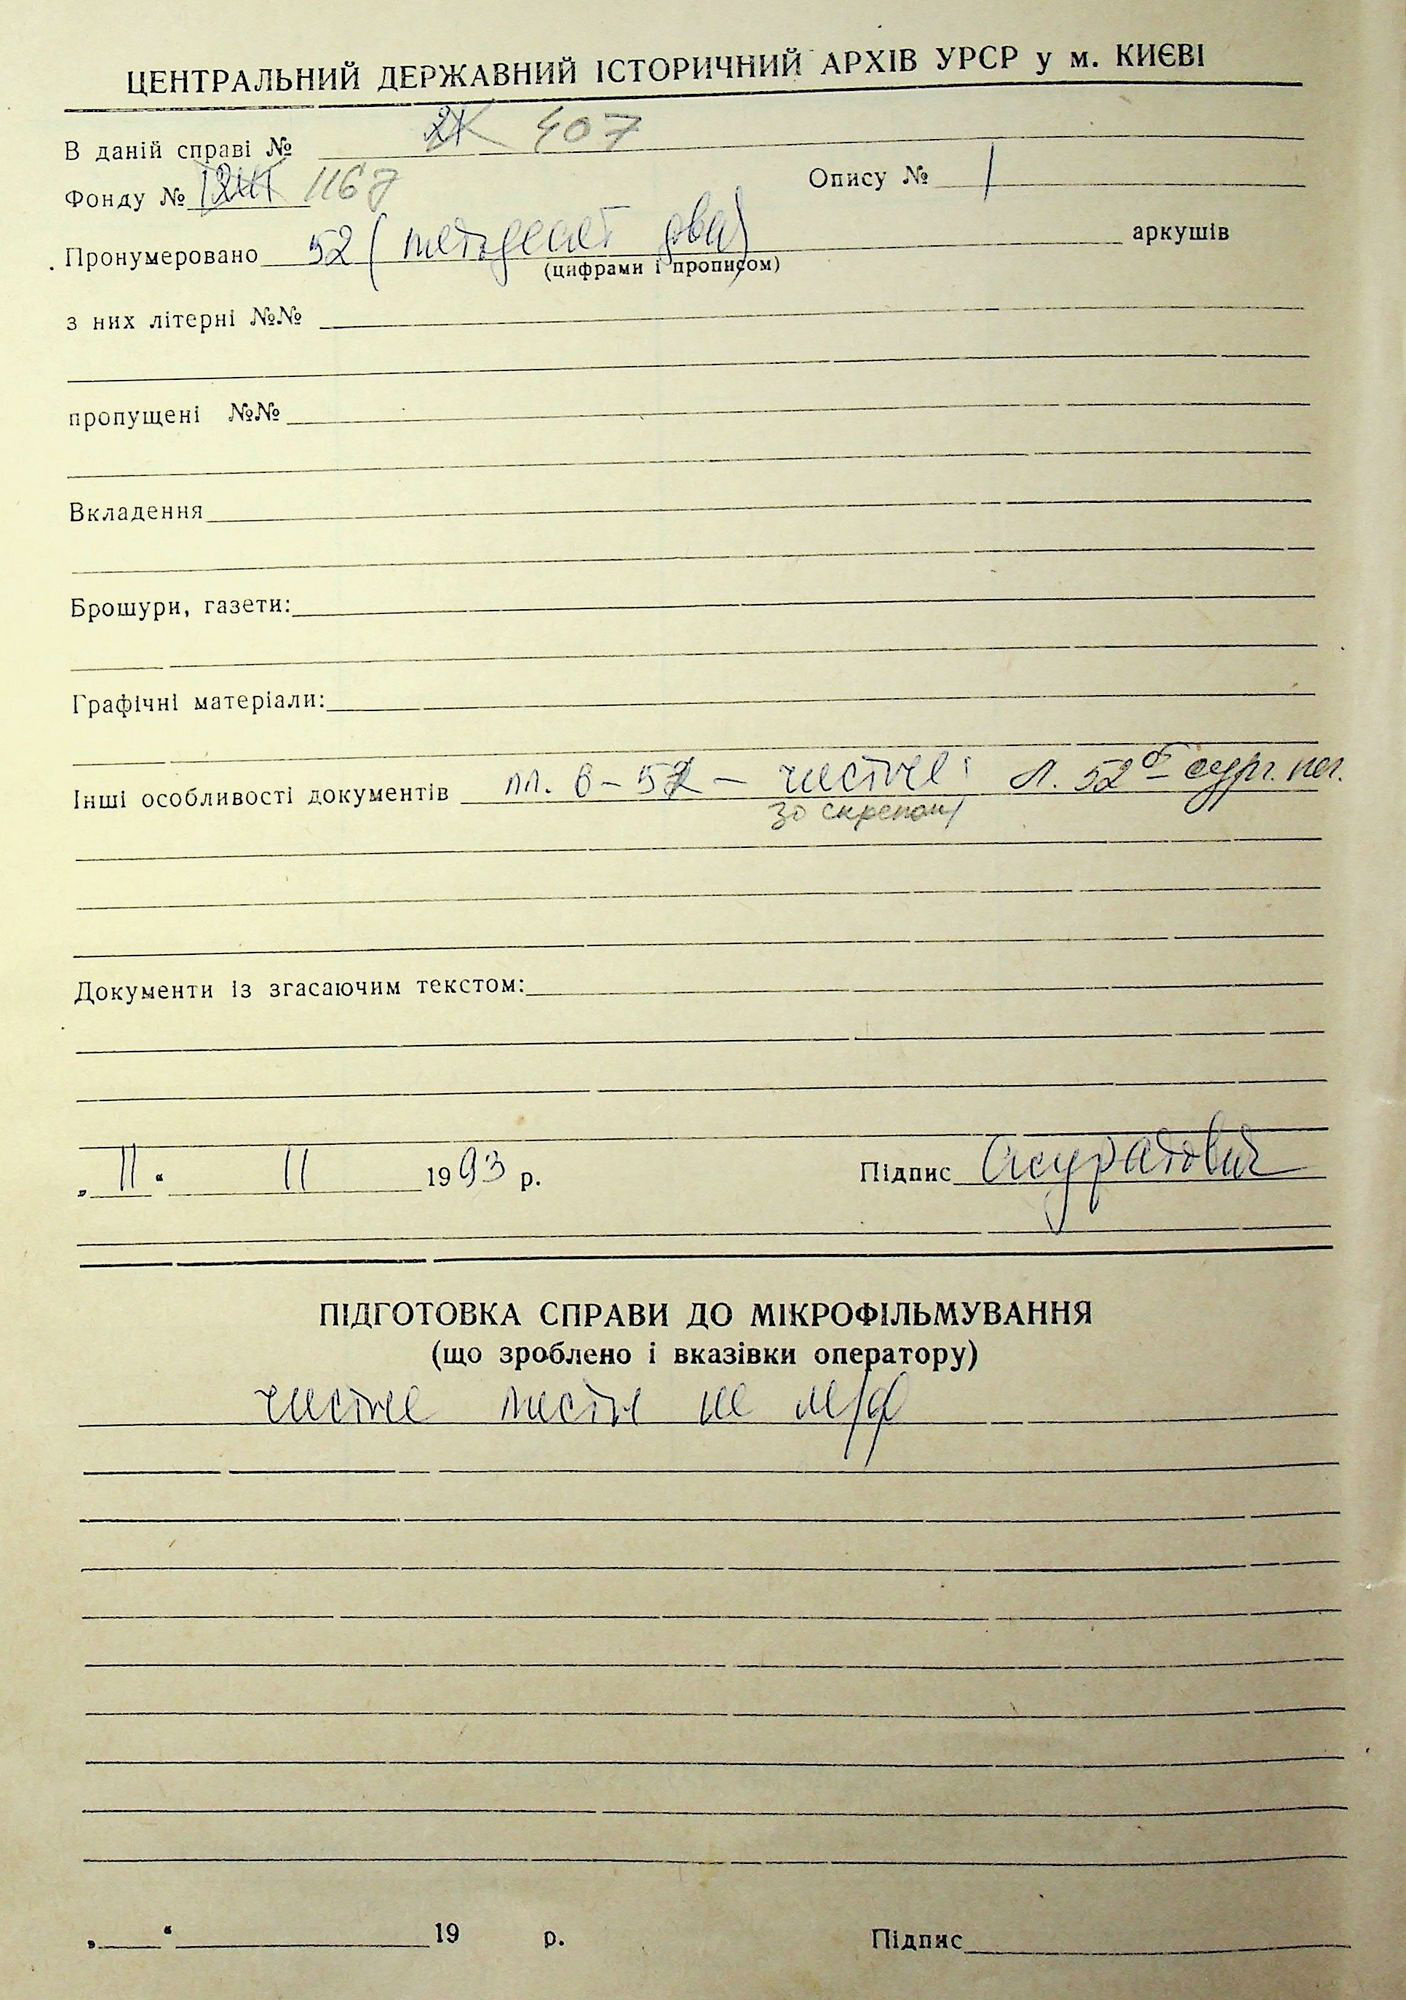 ЦЕНТРАЛЬНИЙ ДЕРЖАВНИЙ ІСТОРИЧНИЙ АРХІВ УРСР у м. КИЄВІ
В даній справі № 407
Фонду № 1167 Опису № 1
Пронумеровано 52 (петдесят два) аркушів
(цифрами і прописом)
з них літерні №№
пропущені №№
Вкладення
Брошури, газети:
Графічні матеріали:
Інші особливості документів лл. 6–52 – чистые; Л. 52 об – сург. печ.
зо скрепою
Документи із згасаючим текстом:
„11“ 11 1993 р. Підпис
ПІДГОТОВКА СПРАВИ ДО МІКРОФІЛЬМУВАННЯ
(що зроблено і вказівки оператору)
чистые листы не м/ф
„ “ 19 р. Підпис